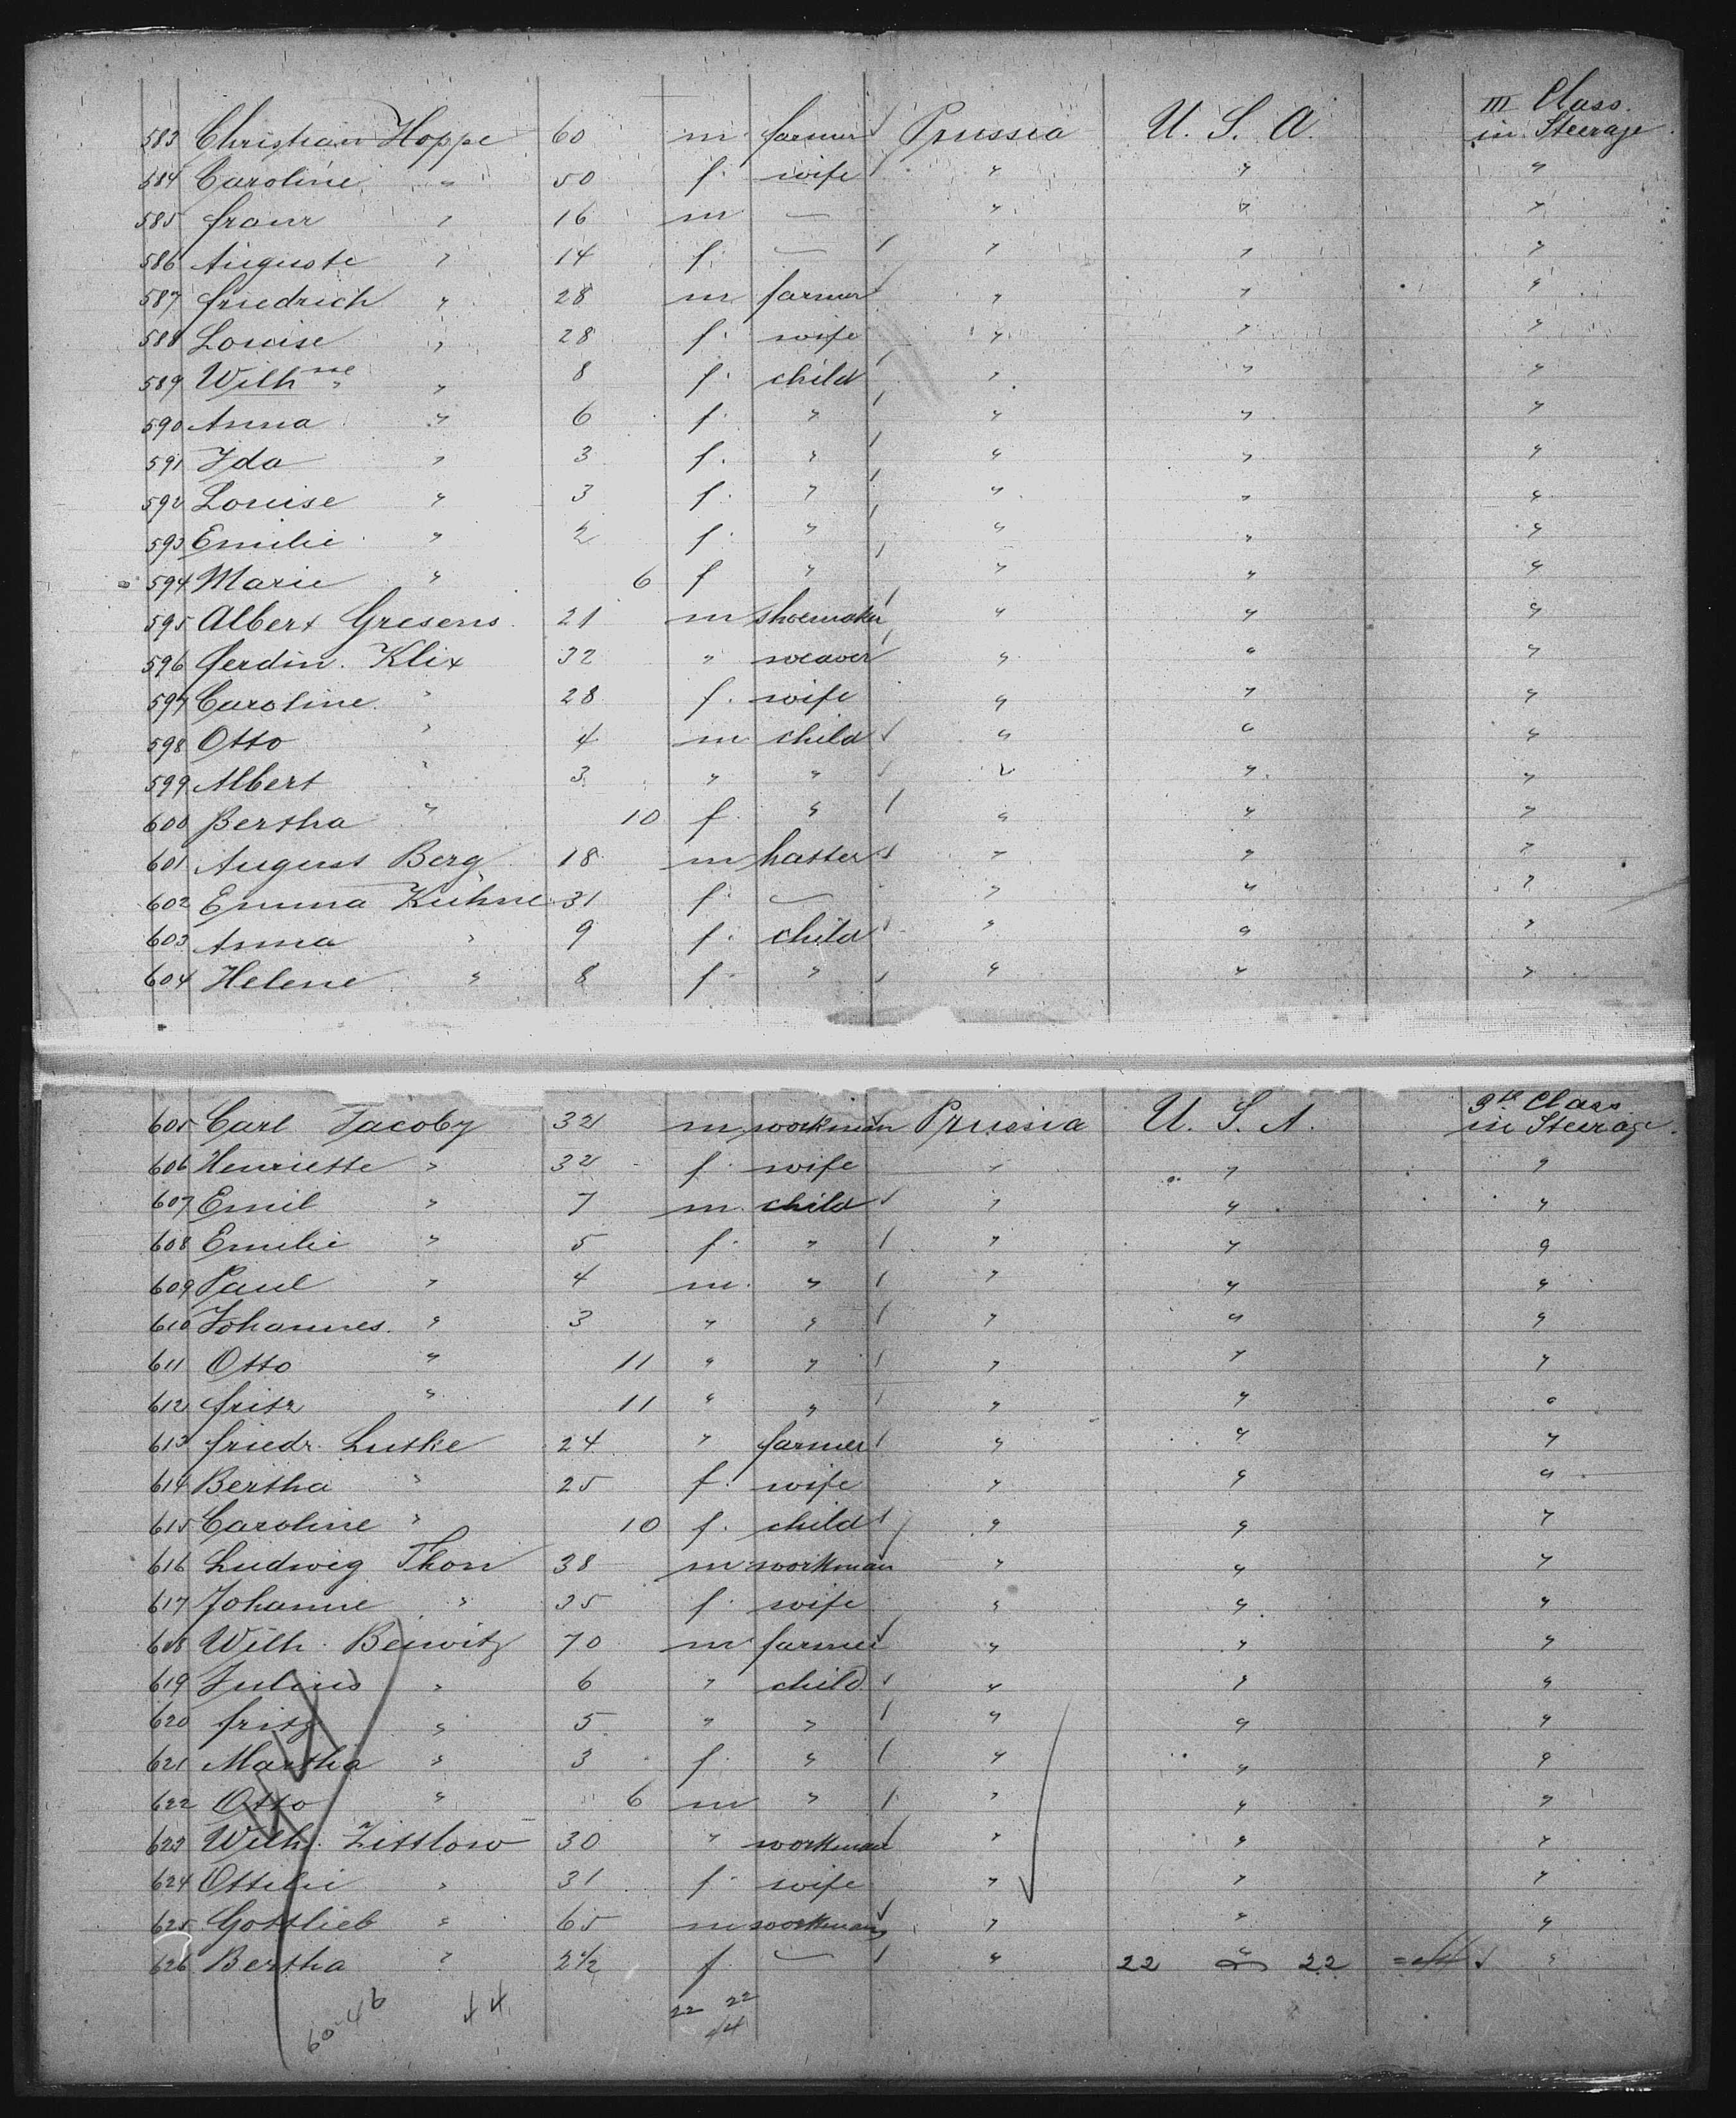 III Class.
583 Christian Hoppe 60 m farmer Prussia U. S. A. in Steerage.
584 Caroline " 50 f. wife " " "
585 Franz " 16 m — " " "
586 Auguste " 14 f. — " " "
587 Friedrich " 28 m farmer " " "
588 Louise " 28 f. wife " " "
589 Wilhne " 8 f. child " " "
590 Anna " 6 f. " " " "
591 Ida " 3 f. " " " "
592 Louise " 3 f. " " " "
593 Emilie " 2 f. " " " "
594 Marie " 6 f " " " "
595 Albert Gresens 21 m shoemaker " " "
596 Ferdin. Klix 32 " weaver " " "
597 Caroline " 28 f. wife " " "
598 Otto " 4 m child " " "
599 Albert " 3 " " " " "
600 Bertha " 10 f " " " "
601 August Berg 18 m hatter " " "
602 Emma Kühne 31 f. — " " "
603 Anna " 9 f. child " " "
604 Helene " 8 f " " " "
3te Class
605 Carl Jacoby 32 m. workman Prussia U. S. A. in Steerage.
606 Henriette " 32 f. wife " " "
607 Emil " 7 m. child " " "
608 Emilie " 5 f. " " " "
609 Paul " 4 m. " " " "
610 Johannes " 3 " " " " "
611 Otto " 11 " " " " "
612 Fritz " 11 " " " " "
613 Friedr. Lutke 24 " farmer " " "
614 Bertha " 25 f. wife " " "
615 Caroline " 10 f. child " " "
616 Ludwig Thon 38 m workman " " "
617 Johanne " 35 f. wife " " "
618 Wilh. 70 m farmer " " "
619 Julius " 6 " child " " "
620 Fritz " 5 " " " " "
621 Martha " 3 f. " " " "
622 Otto " 6 m " " " "
623 Wilh. Zittlow 30 " workman " " "
624 Ottilie " 31 f. wife " " "
625 Gottlieb " 65 m workman " " "
626 Bertha " 2½ f — " 22 " 22 "
60-46 44 22 22
44